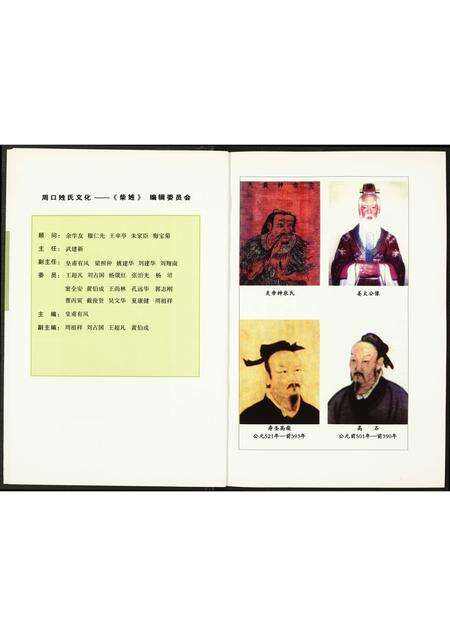 周口姓氏文化 ——《柴姓》 编辑委员会
顾 问: 余学友 穆仁先 王幸亭 朱家臣 梅宝菊
主 任: 武建新
副主任: 皇甫有风 梁相仲 姚建华 刘建华 刘翔南
委 员: 王超凡 刘占国 杨箴红 张治光 杨 培
窦全安 黄伯成 王尚林 孔远华 郭志刚
曹丙寅 戴俊贤 吴文华 夏康健 周祖祥
主 编: 皇甫有风
副主编: 周祖祥 刘占国 王超凡 黄伯成
炎帝神农氏
姜太公像
寿圣高柴
公元521年—前393年
高 石
公元前501年—前390年